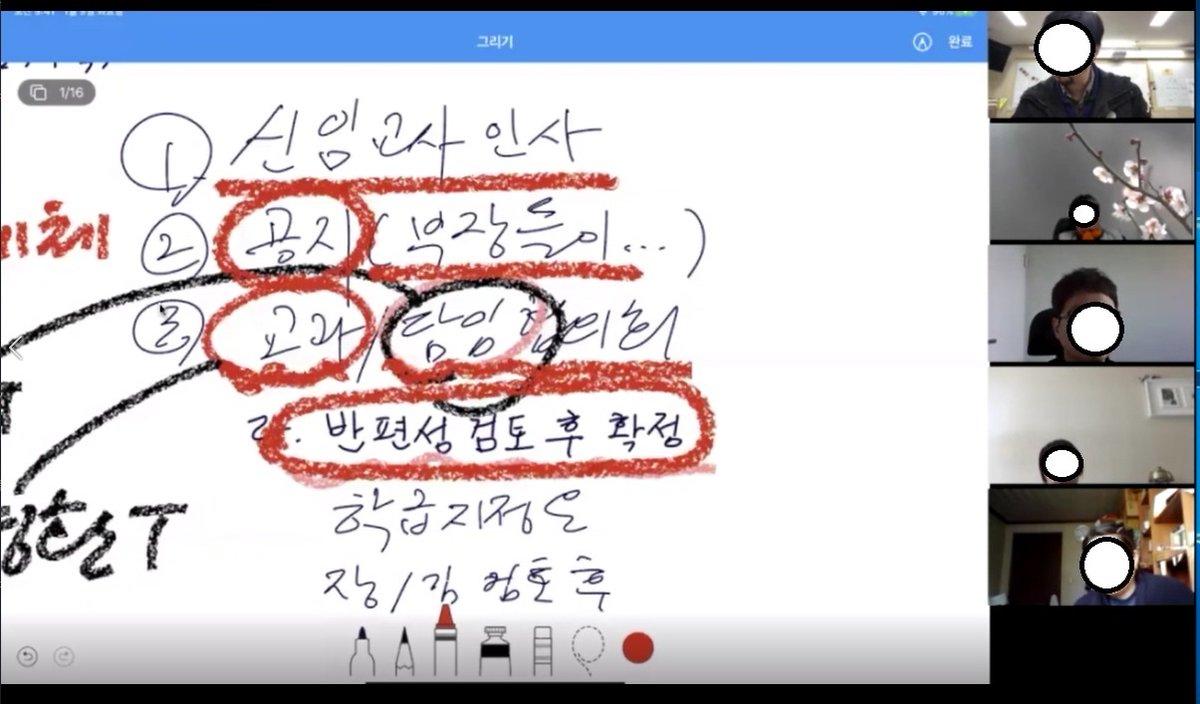 그리기 완료
1/16
① 신임교사 인사
② 공지 (부장들이...)
③ 교과/담임협의회
반편성 검토 후 확정
학급지정은
장/김 검토 후